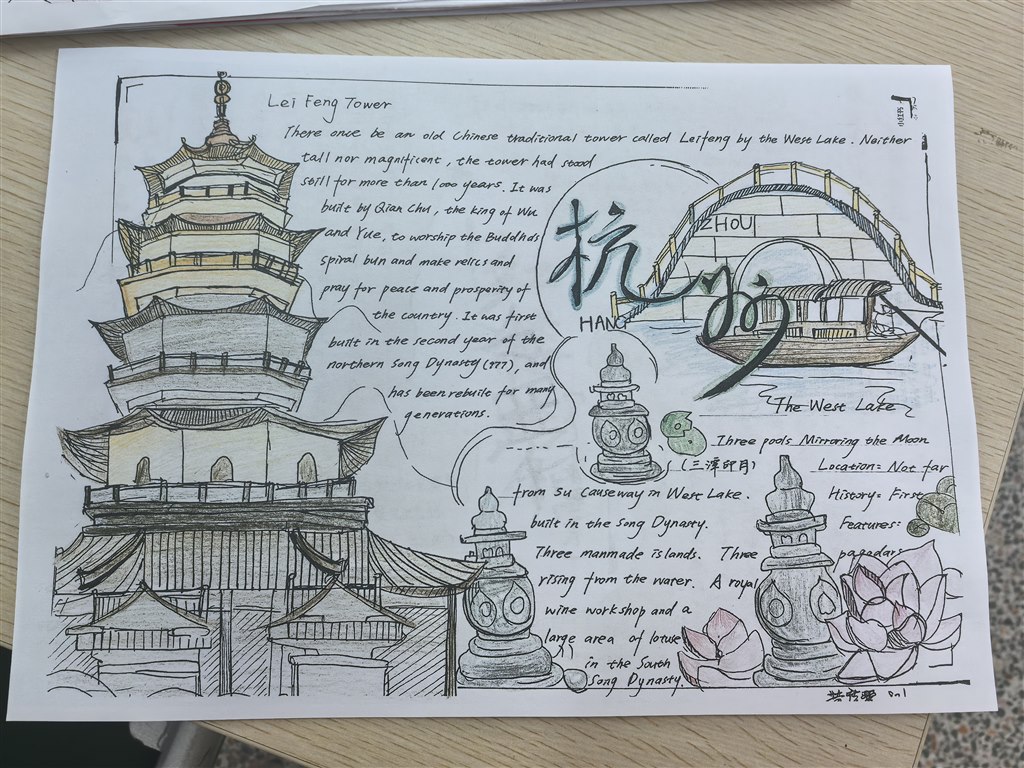 Lei Feng Tower
There once be an old Chinese traditional tower called Leifeng by the West Lake. Neither
tall nor magnificent, the tower had stood
still for more than 1000 years. It was
built by Qian Chu, the king of Wu
and Yue, to worship the Buddha's
spiral bun and make relics and
pray for peace and prosperity of
the country. It was first
built in the second year of the
northern Song Dynasty (977), and
has been rebuilt for many
generations.
杭州
ZHOU
HANG
The West Lake
Three pools Mirroring the Moon
(三潭印月)
Location: Not far
from Su Causeway in West Lake.
History: First
built in the Song Dynasty.
Features:
Three manmade islands. Three pagodars
rising from the water. A royal
wine workshop and a
large area of lotuse
in the South
Song Dynasty.
801